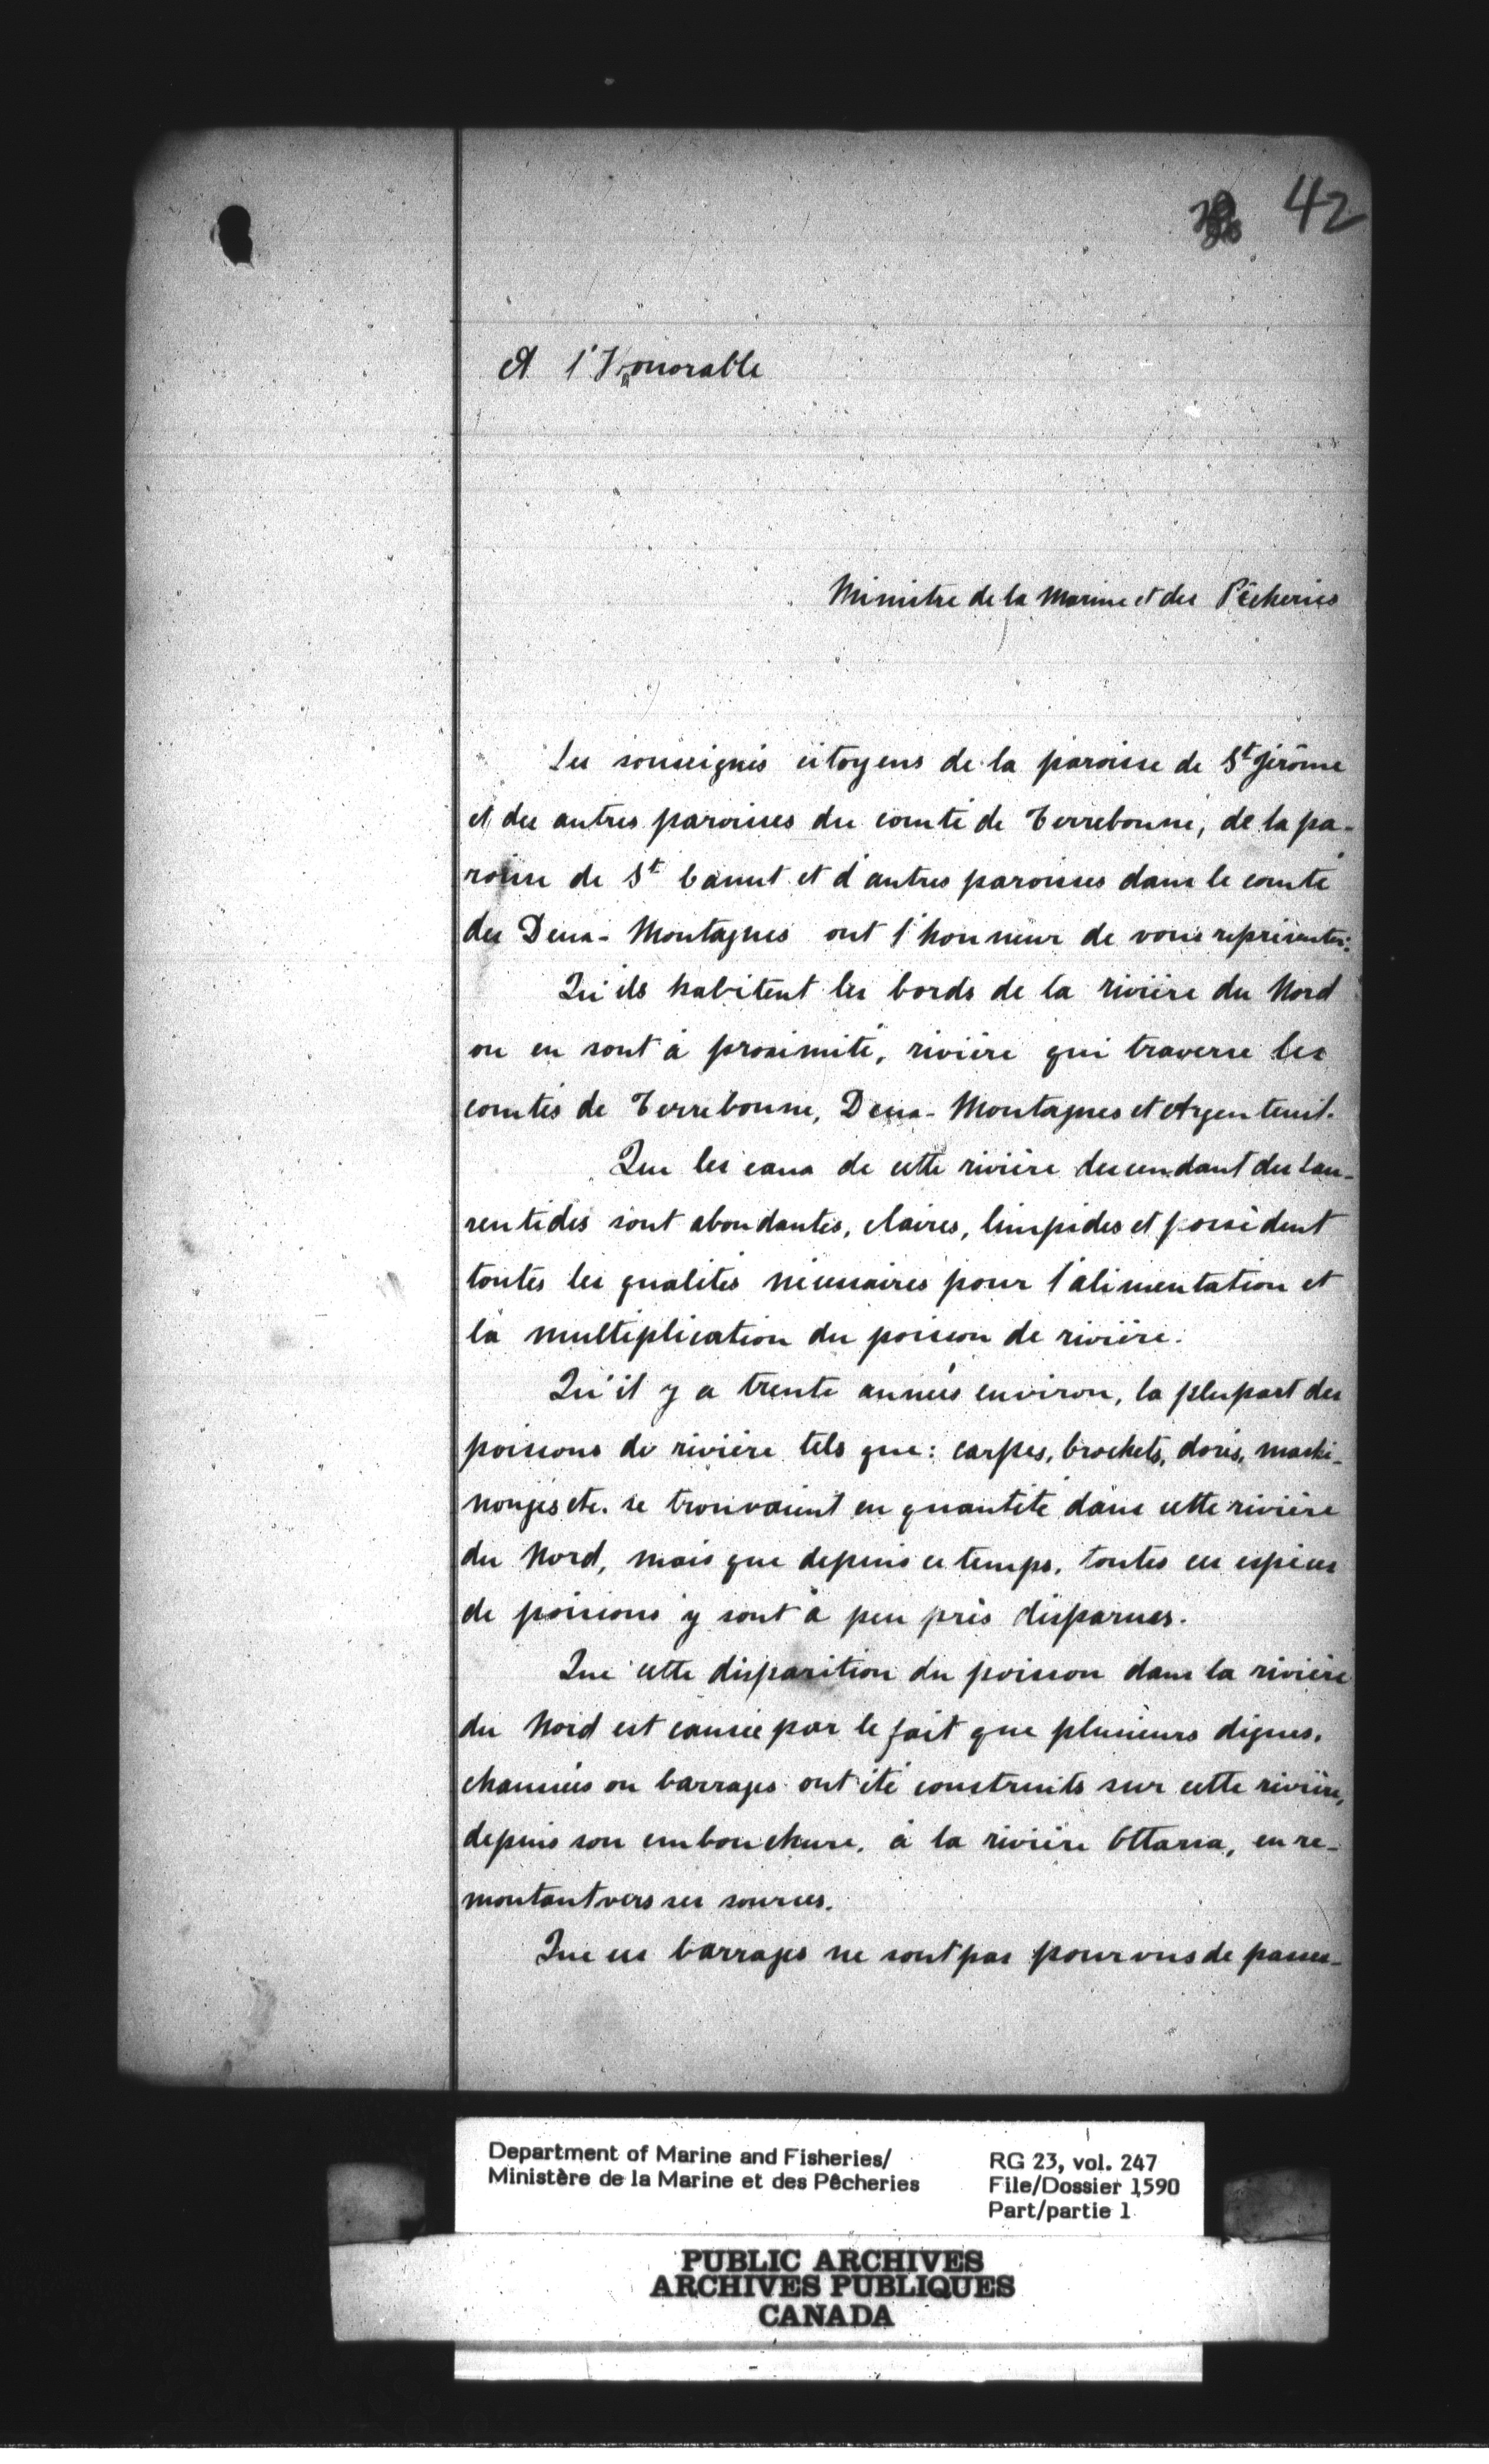 42
A l'Honorable
Ministre de la Marine et des Pêcheries
Les sousignés citoyens de la paroisse de St Jérôme
et des autres paroisses du comté de Terrebonne, de la pa-
roisse de St Canut et d'autres paroisses dans le comté
des Deux-Montagnes ont l'honneur de vous représenter:
Qu'ils habitent les bords de la rivière du Nord
ou en sont à proximité, rivière qui traverse les
comtés de Terrebonne, Deux-Montagnes et Argenteuil.
Que les eaux de cette rivière descendant des Lau-
rentides sont abondantes, claires, limpides et possèdent
toutes les qualités nécessaires pour l'alimentation et
la multiplication du poisson de rivière.
Qu'il y a trente années environ, la plupart des
poissons de rivière tels que: carpes, brochets, dorés, maski-
nongés etc. se trouvaient en quantité dans cette rivière
du Nord, mais que depuis ce temps, toutes ces espèces
de poissons y sont à peu près disparues.
Que cette disparition du poisson dans la rivière
du Nord est causée par le fait que plusieurs digues,
chaussées ou barrages ont été construits sur cette rivière,
depuis son embouchure, à la rivière Ottawa, en re-
montant vers ses sources.
Que ces barrages ne sont pas pourvus de passes-
Department of Marine and Fisheries/
Ministère de la Marine et des Pêcheries
RG 23, vol. 247
File/Dossier 1590
Part/partie 1
PUBLIC ARCHIVES
ARCHIVES PUBLIQUES
CANADA